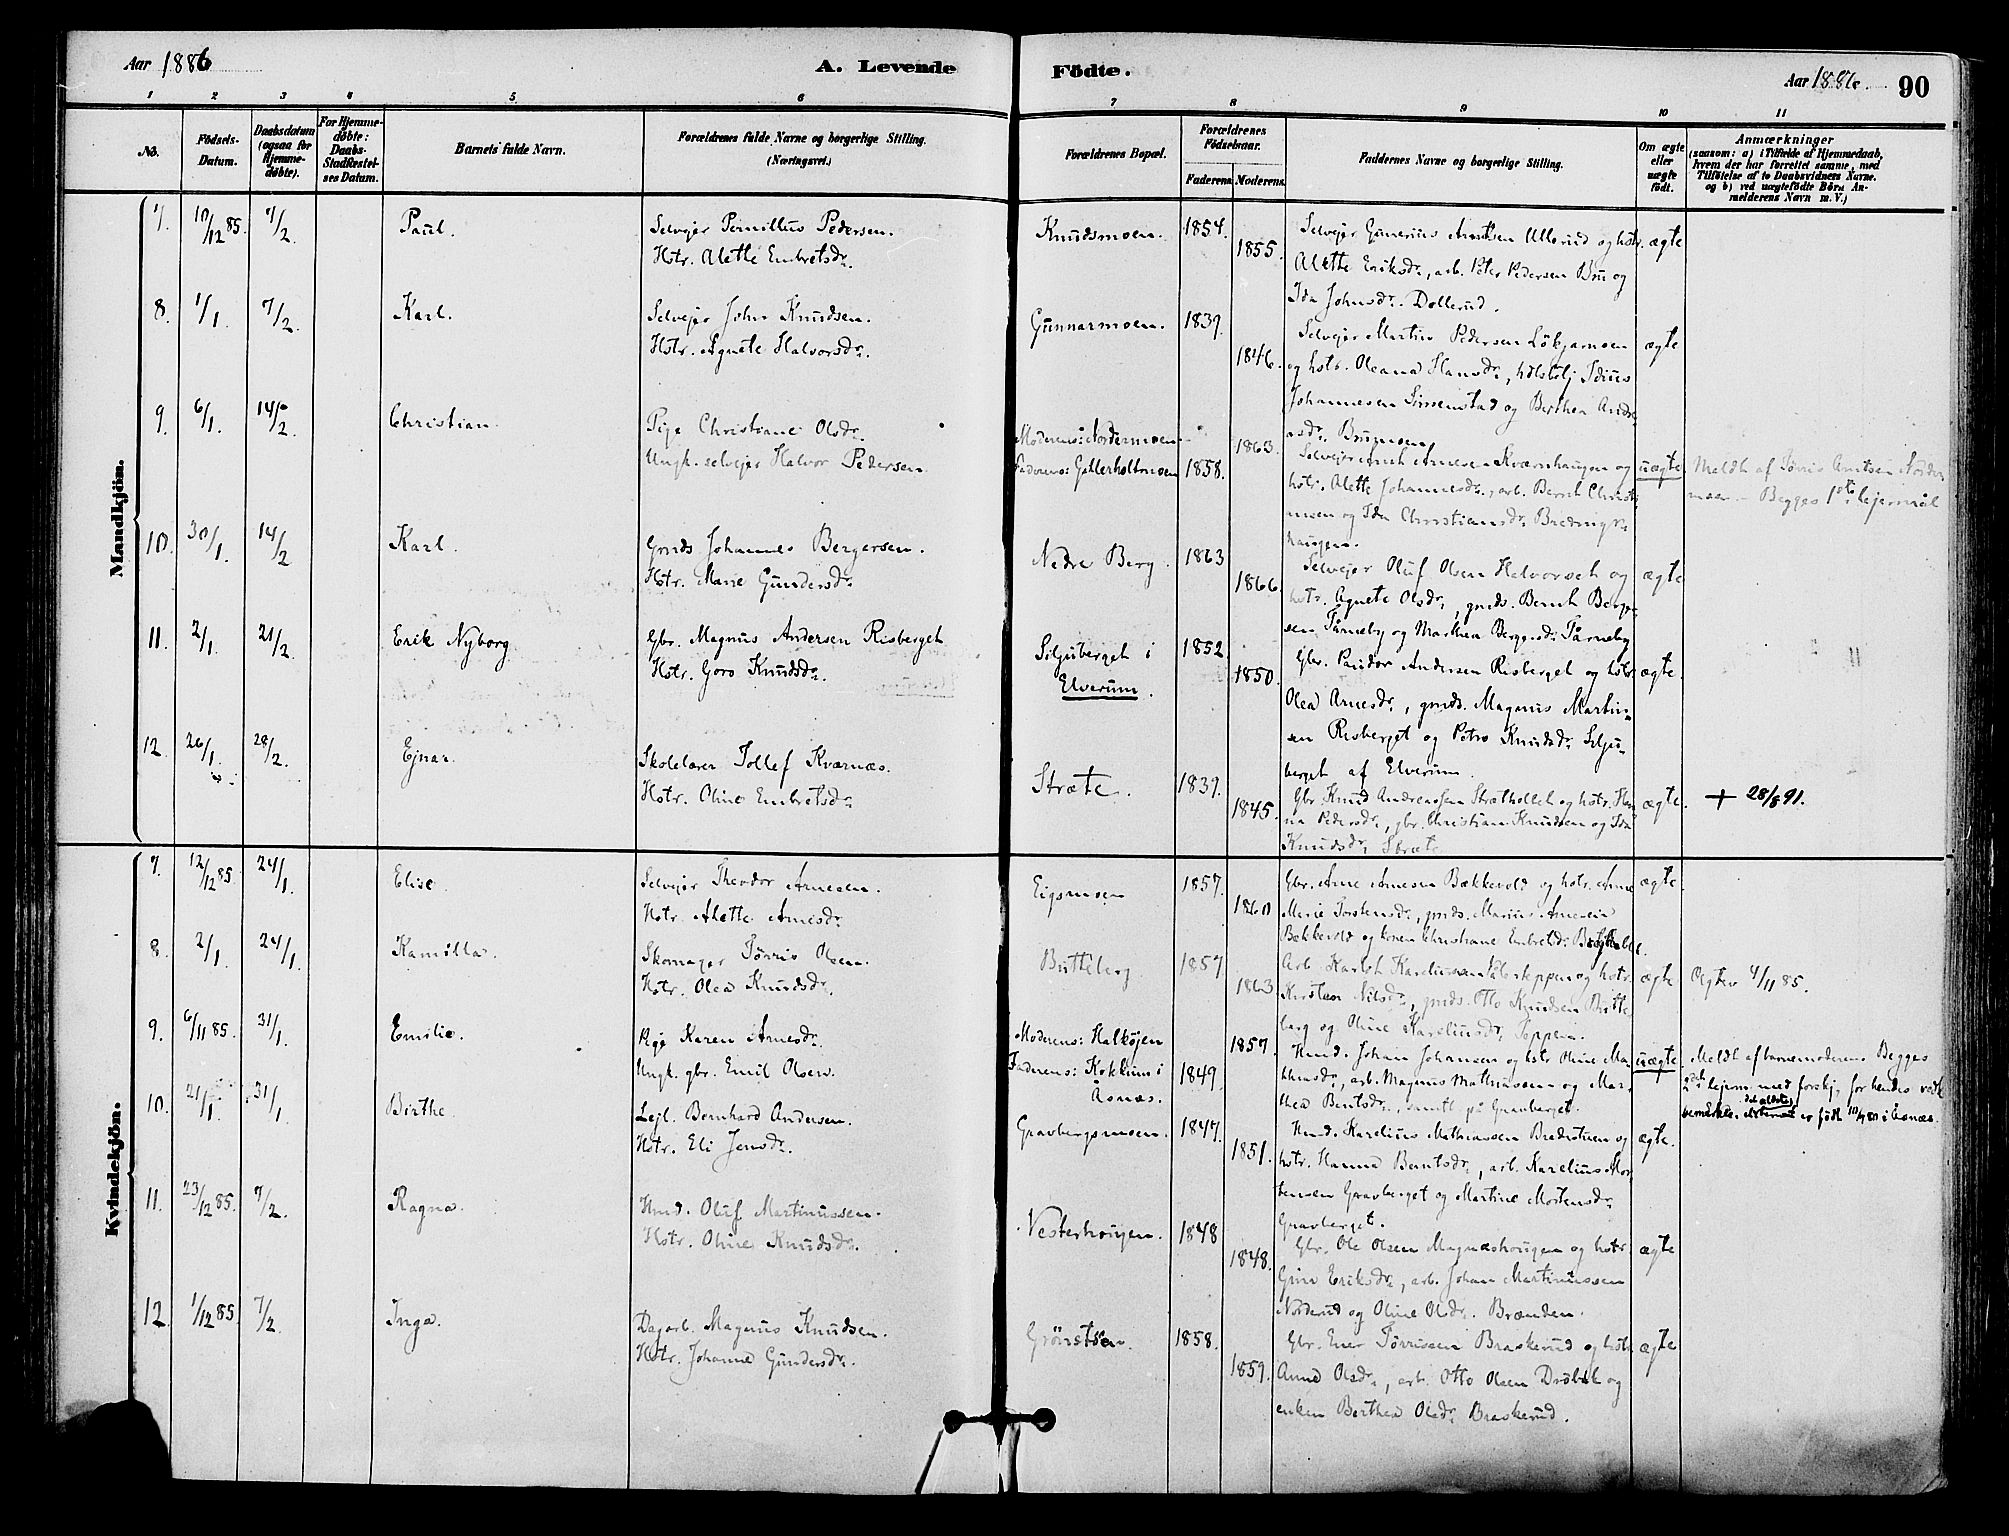 Aar 1886
A. Levende
Födte.
Aar 1886.
90
1 2 3 4 5 6 7 8 9 10 11
No.
Födsels-
Datum.
Daabsdatum
(ogsaa for
Hjemme-
döbte).
For Hjemme-
döbte:
Daabs-
Stadfæstel-
ses Datum.
Barnets fulde Navn.
Forældrenes fulde Navne og borgerlige Stilling.
(Næringsvei.)
Forældrenes Bopæl.
Forældrenes
Födselsaar.
Faderens. Moderens.
Faddernes Navne og borgerlige Stilling.
Om ægte
eller
uægte
födt.
Anmærkninger
(saasom: a) i Tilfælde af Hjemmedaab,
hvem der har forrettet samme, med
Tilföielse af to Daabsvidners Navne.
og b) ved uægtefödte Börn An-
melderens Navn m. V.)
Mandkjön.
7. 10/12 85. 7/2. Paul.
Selvejer Pernillus Pedersen.
Hstr. Alette Embretsdr.
Knudsmoen. 1854. 1855.
Selvejer Gunerius Arntsen Ullerud og hstr.
Alette Eriksdr., arb. Peter Pedersen Bru og
Ida Johnsdr. Dollerud.
ægte
8. 1/1. 7/2. Karl.
Selvejer John Knudsen.
Hstr. Agnete Halvorsdr.
Gunnarmoen. 1839. 1846.
Selvejer Martin Pedersen Lökjamoen
og hstr. Oleana Hansdr.,
Johannesen Simenstad og Berthea Andre-
asdr. Brumoen.
ægte
9. 6/1. 14/2. Christian.
Pige Christiane Olsdr.
Ungk. selvejer Halvor Pedersen.
Moderens: Nordermoen
Faderens: Gitlerholtmoen 1858. 1863.
Selvejer Arnt Arnesen Kværnhaugen og
hstr. Alette Johannesdr., arb. Bernt Christi-
ansen og Ida Christiansdr.
haugen.
uægte
Meldt af Törris Arntsen Norder-
moen. – Begges 1ste lejermål
10. 30/1. 14/2. Karl.
Gmds. Johannes Bergersen.
Hstr. Marie Gundersdr.
Nedre Berg. 1863 1866.
Selvejer Oluf Olsen Halvorset og
hstr. Agnete Olsdr., gmds. Bernt Berger-
sen Tårneby og Marthea Bergersdr. Tårneby
ægte
11. 2/1. 21/2. Erik Nyborg.
Gbr. Magnus Andersen Risberget
Hstr. Goro Knudsdr.
Siljuberget i
Elverum.
1852. 1850.
Gbr. Andersen Risberget og hstr.
Olea Arnesdr., gmds. Magnus Martin-
sen Risberget og Petra Knudsdr. Silju-
berget af Elverum.
ægte.
12. 26/1. 28/2. Ejnar.
Skolelærer Tollef Kværnæs.
Hstr. Oline Embretsdr.
Stræte. 1839. 1845.
Gbr. Knud Andreassen Strætkollet og hstr. Han-
na Pedersdr., gbr. Christian Knudsen og Ida
Knudsdr. Stræte
ægte.
+ 28/8 91.
Kvindekjön.
7. 12/12 85. 24/1. Elise.
Selvejer Theodor Arnesen.
Hstr. Alette Arnesdr.
Eigsmoen 1857. 1860
Gbr. Arne Arnesen Bækkevold og hstr. Anne
Marie Torstensdr., gmds. Marius Arnesen
Bækkevold og konen Christiane Embretsdr.
ægte.
8. 2/1. 24/1. Kamilla.
Skomager Törris Olsen.
Hstr. Olea Knudsdr.
Butteberg 1857 1863.
Arb. og hstr.
Kirsten Nilsdr., gmds. Otto Knudsen Butte-
berg og Oline Kareliusdr. Teppen.
ægte
Ægtev 4/11 85.
9. 6/11 85. 31/1. Emilie.
Pige Karen Arnesdr.
Ungk. gbr. Emil Olsen.
Moderens: Halköjen
Faderens: Kokkum i
Åsnæs.
1849. 1857.
Hmd. Johan Johansen og hstr. Oline Ma-
thisdr., arb. Magnus Mathiassen og Mar-
thea Berntsdr., samtl. på Gravberget.
uægte
Meldt af barnemoderen. Begges
2det lejerm. med forskj., for hendes vedk.
10. 21/1. 31/1. Birthe.
Lejl. Bernhard Andersen.
Hstr. Eli Jensdr.
Gravbergsmoen. 1847. 1851.
Hmd. Karelius Mathiassen Bredestuen og
hstr. Hanna Berntsdr., arb. Karelius Mor-
tensen Gravberget og Martine Mortensdr.
Gravberget.
ægte.
11. 23/12 85. 7/2. Ragna.
Hmd. Oluf Martinussen.
Hstr. Oline Knudsdr.
Vesterhaugen. 1848 1848.
Gbr. Ole Olsen Magnæshaugen og hstr.
Gina Eriksdr., arb. Johan Martinussen
Norderud og Oline Olsdr. Brænden.
ægte
12. 1/12 85. 7/2. Inga.
Dagarb. Magnus Knudsen.
Hstr. Johanne Gundersdr.
Grönstöen. 1858. 1859.
Gbr. Ener Törrissen Braskerud og hstr.
Anne Olsdr., arb. Otto Olsen Dröbak og
enken Berthea Olsdr. Braskerud.
ægte